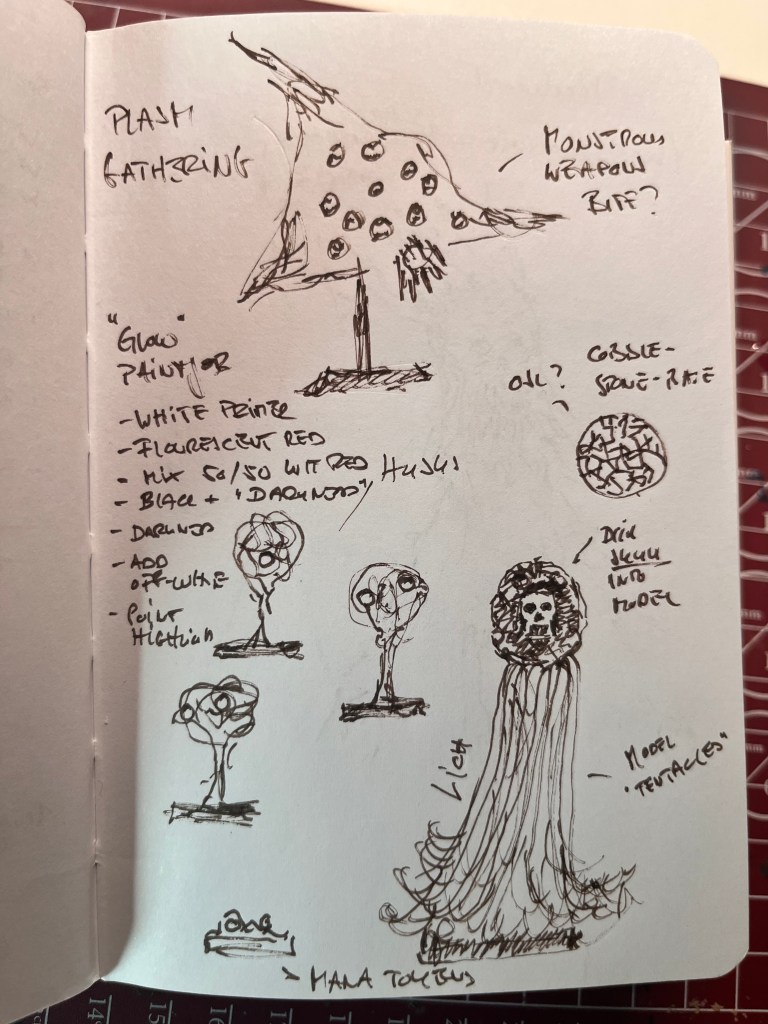 PLASM
GATHERING
MONSTROUS
WEAPON
BITE?
"GLOW"
PAINTJOB
- WHITE PRIMER
- FLOURESCENT RED
- MIX 50/50 WIT RED
- BLACK + "DARKNESS"
- DARKNESS
- ADD
OFF-WHITE
- POINT
HIGHLIGH
HUSKS
OSL?
COBBLE-
STONE-BASE
SKULL
INTO
MODEL
LICH
MODEL
"TENTACLES"
MANA TOKENS
14
15
16